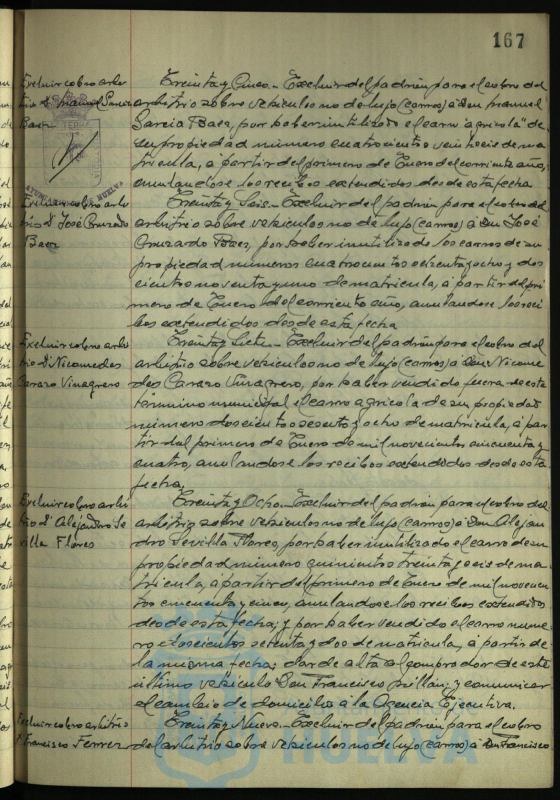 167
Excluir cobro arbi
trio D. Manuel Garcia
Baez
Treinta y Cinco.- Excluir del padrón para el cobro del
arbitrio sobre vehículos no de lujo (carros) a Don Manuel
Garcia Baez, por haber inutilizado el carro "agricola" de
su propiedad número cuatrocientos veintiseis de ma
tricula, a partir del primero de Enero del corriente año,
anulandose los recibos extendidos desde esta fecha
Excluir cobro arbi
trio D. José Cruzado
Baez
Treinta y Seis.- Excluir del padrón para el cobro del
arbitrio sobre vehículos no de lujo (carros) a Don José
Cruzado Baez, por haber inutilizado los carros de su
propiedad números cuatrocientos ochenta y ocho y dos
cientos noventa y uno de matricula, a partir del pri
mero de Enero del corriente año, anulandose los reci
bos extendidos desde esta fecha
Excluir cobro arbi
trio D. Nicomedes
Cararo Vinagrero
Treinta y Siete.- Excluir del padrón para el cobro del
arbitrio sobre vehículos no de lujo (carros) a Don Nicome
des Cararo Vinagrero, por haber vendido fuera de este
término municipal el carro agricola de su propiedad
número doscientos sesenta y ocho de matricula, a par
tir del primero de Enero de mil novecientos cincuenta y
cuatro, anulandose los recibos extendidos desde esta
fecha.
Excluir cobro arbi
trio D. Alejandro Se
villa Flores
Treinta y Ocho.- Excluir del padrón para el cobro del
arbitrio sobre vehículos no de lujo (carros) a Don Alejan
dro Sevilla Flores, por haber inutilizado el carro de su
propiedad número quinientos treinta y seis de ma
tricula, a partir del primero de Enero de mil novecien
tos cincuenta y cinco, anulandose los recibos extendidos
desde esta fecha; y por haber vendido el carro nume
ro doscientos setenta y dos de matricula, a partir de
la misma fecha; dar de alta al comprador de este
último vehículo Don Francisco Millan; y comunicar
el cambio de domicilio a la Agencia Ejecutiva.
Excluir cobro arbitrio
D. Francisco Ferrer
Treinta y Nueve.- Excluir del padrón para el cobro
del arbitrio sobre vehículos no de lujo (carros) a Don Francisco
HUELVA